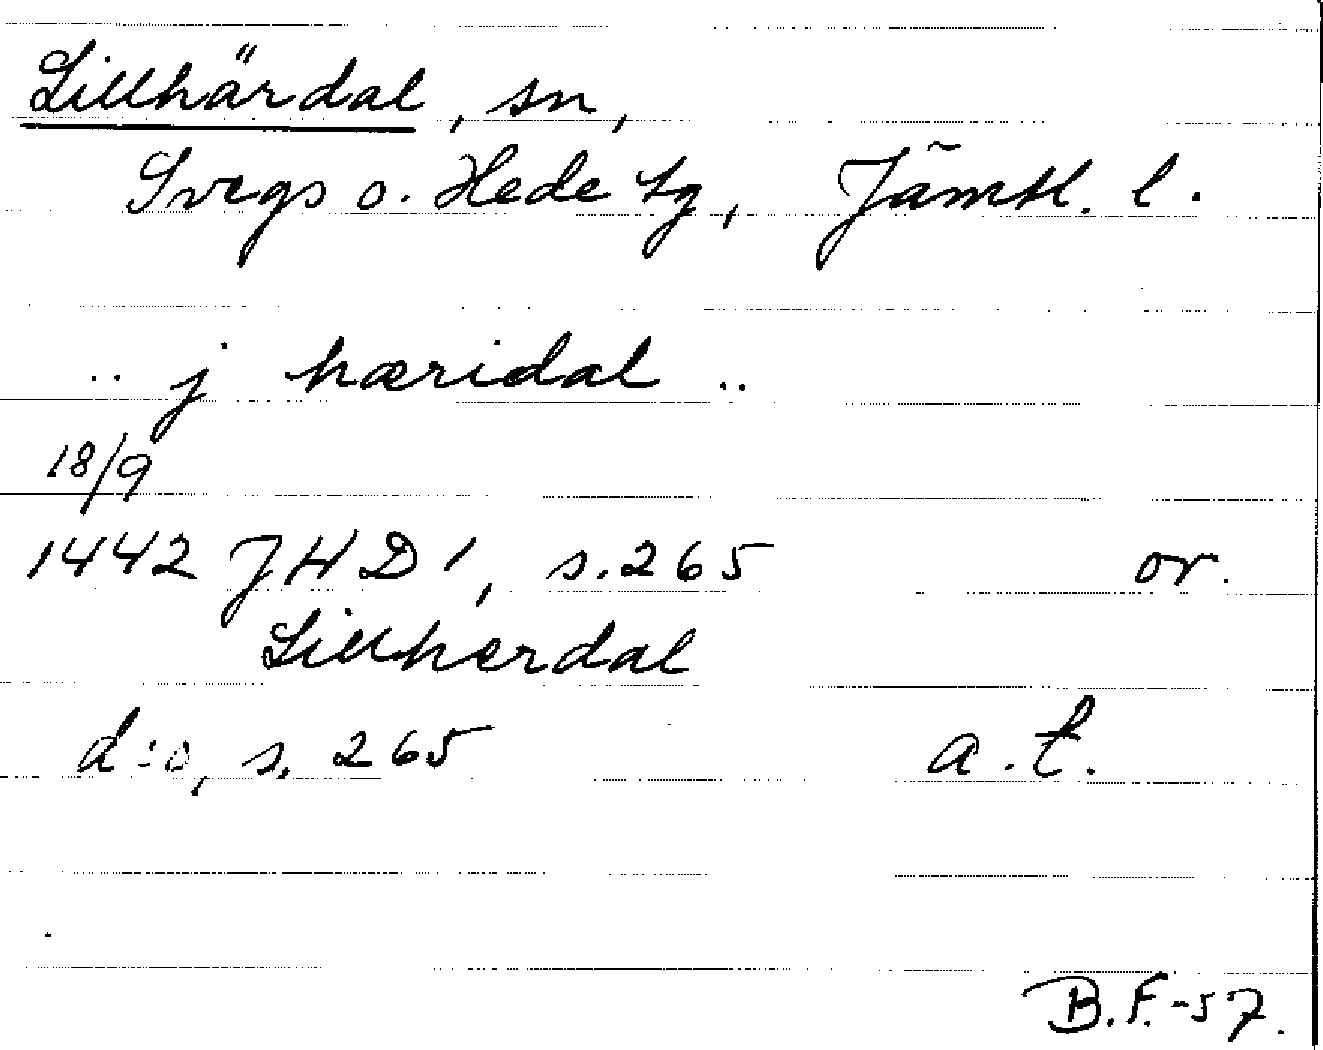 Lillhärdal, sn,
Svegs o. Hede tg, Jämtl. l.
.. j hæridal ..
18/9
1442 JHD 1, s. 265 or.
Lillherdal
d:o, s. 265 a.t.
B.F.-57.